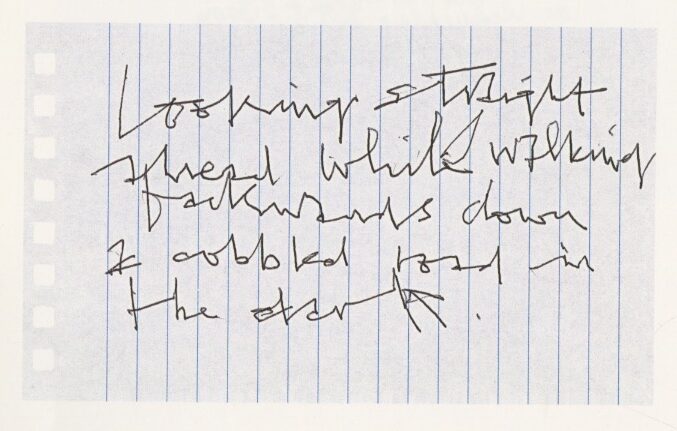 Looking straight
ahead while walking
backwards down
a cobbled road in
the dark.